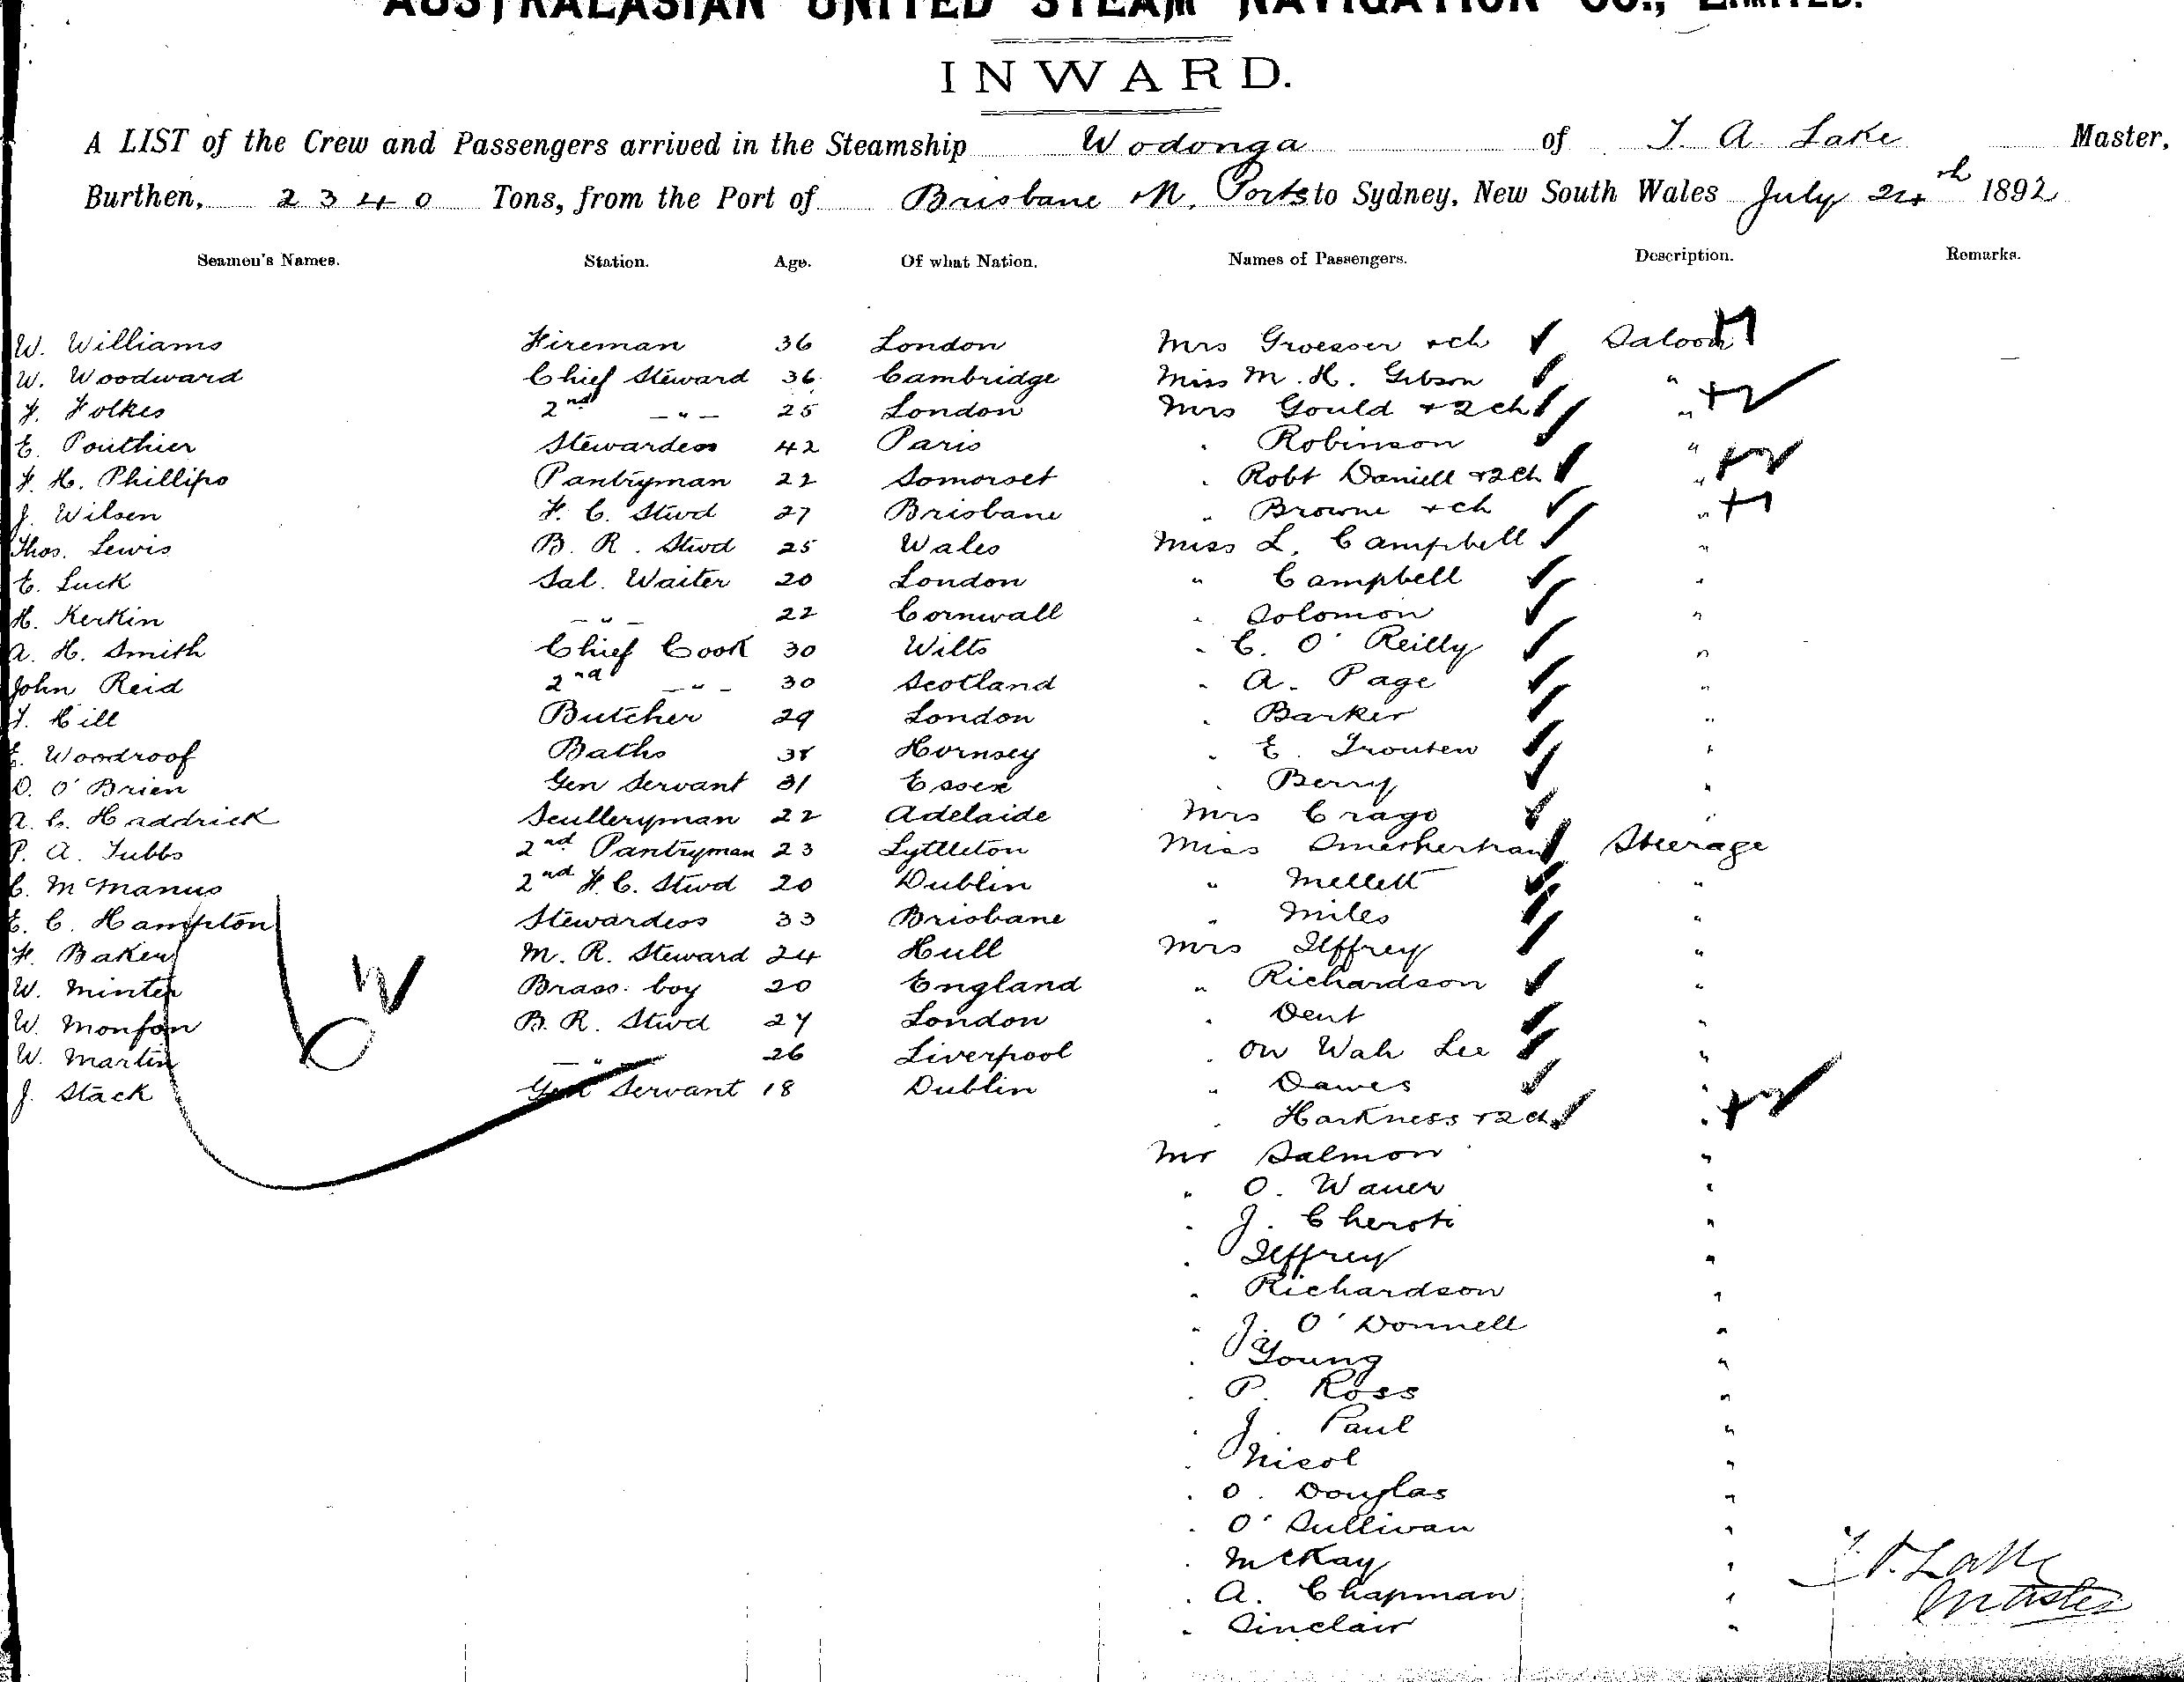 AUSTRALASIAN UNITED STEAM NAVIGATION CO., LIMITED.
INWARD.
A LIST of the Crew and Passengers arrived in the Steamship Wodonga of T. A. Lake Master,
Burthen, 2340 Tons, from the Port of Brisbane & N. Ports to Sydney, New South Wales July 24th 1892
Seamen's Names. Station. Age. Of what Nation. Names of Passengers. Description. Remarks.
W. Williams Fireman 36 London Mrs Groesser + ch Saloon
W. Woodward Chief Steward 36 Cambridge Miss M. H. Gibson "
F. Folkes 2nd " 25 London Mrs Gould + 2 ch "
E. Pouthier Stewardess 42 Paris " Robinson "
F. H. Phillips Pantryman 22 Somerset " Robt Daniell + 2 ch "
J. Wilson F. C. Stwd 27 Brisbane " Browne + ch "
Thos. Lewis B. R. Stwd 25 Wales Miss L. Campbell "
E. Luck Sal. Waiter 20 London " Campbell "
H. Kerkin " 22 Cornwall " Solomon "
A. H. Smith Chief Cook 30 Wilts " C. O'Reilly "
John Reid 2nd " 30 Scotland " A. Page "
T. Hill Butcher 29 London " Barker "
E. Woodroof Baths 38 Hornsey " E. Trouten "
D. O'Brien Gen Servant 31 Essex " Berry "
A. C. Haddrick Sculleryman 22 Adelaide Mrs Crago "
P. A. Tubbs 2nd Pantryman 23 Lyttleton Miss Steerage
C. McManus 2nd F. C. Stwd 20 Dublin " Mellett "
E. C. Hampton Stewardess 33 Brisbane " Miles "
F. Baker M. R. Steward 24 Hull Mrs Jeffrey "
W. Minter Brass. boy 20 England " Richardson "
W. Monfon B. R. Stwd 24 London " Dent "
W. Martin " 26 Liverpool " On Wah Lee "
J. Stack Gen Servant 18 Dublin " Dawes "
" Harkness + 2 ch "
Mr Salmon "
" O. Wauer "
" J. Chersti "
" Jeffrey "
" Richardson "
" J. O'Donnell "
" Young "
" P. Ross "
" J. Paul "
" Nicol "
" O. Douglas "
" O'Sullivan "
" McKay "
" A. Chapman "
" Sinclair "
T. A. Lake
Master